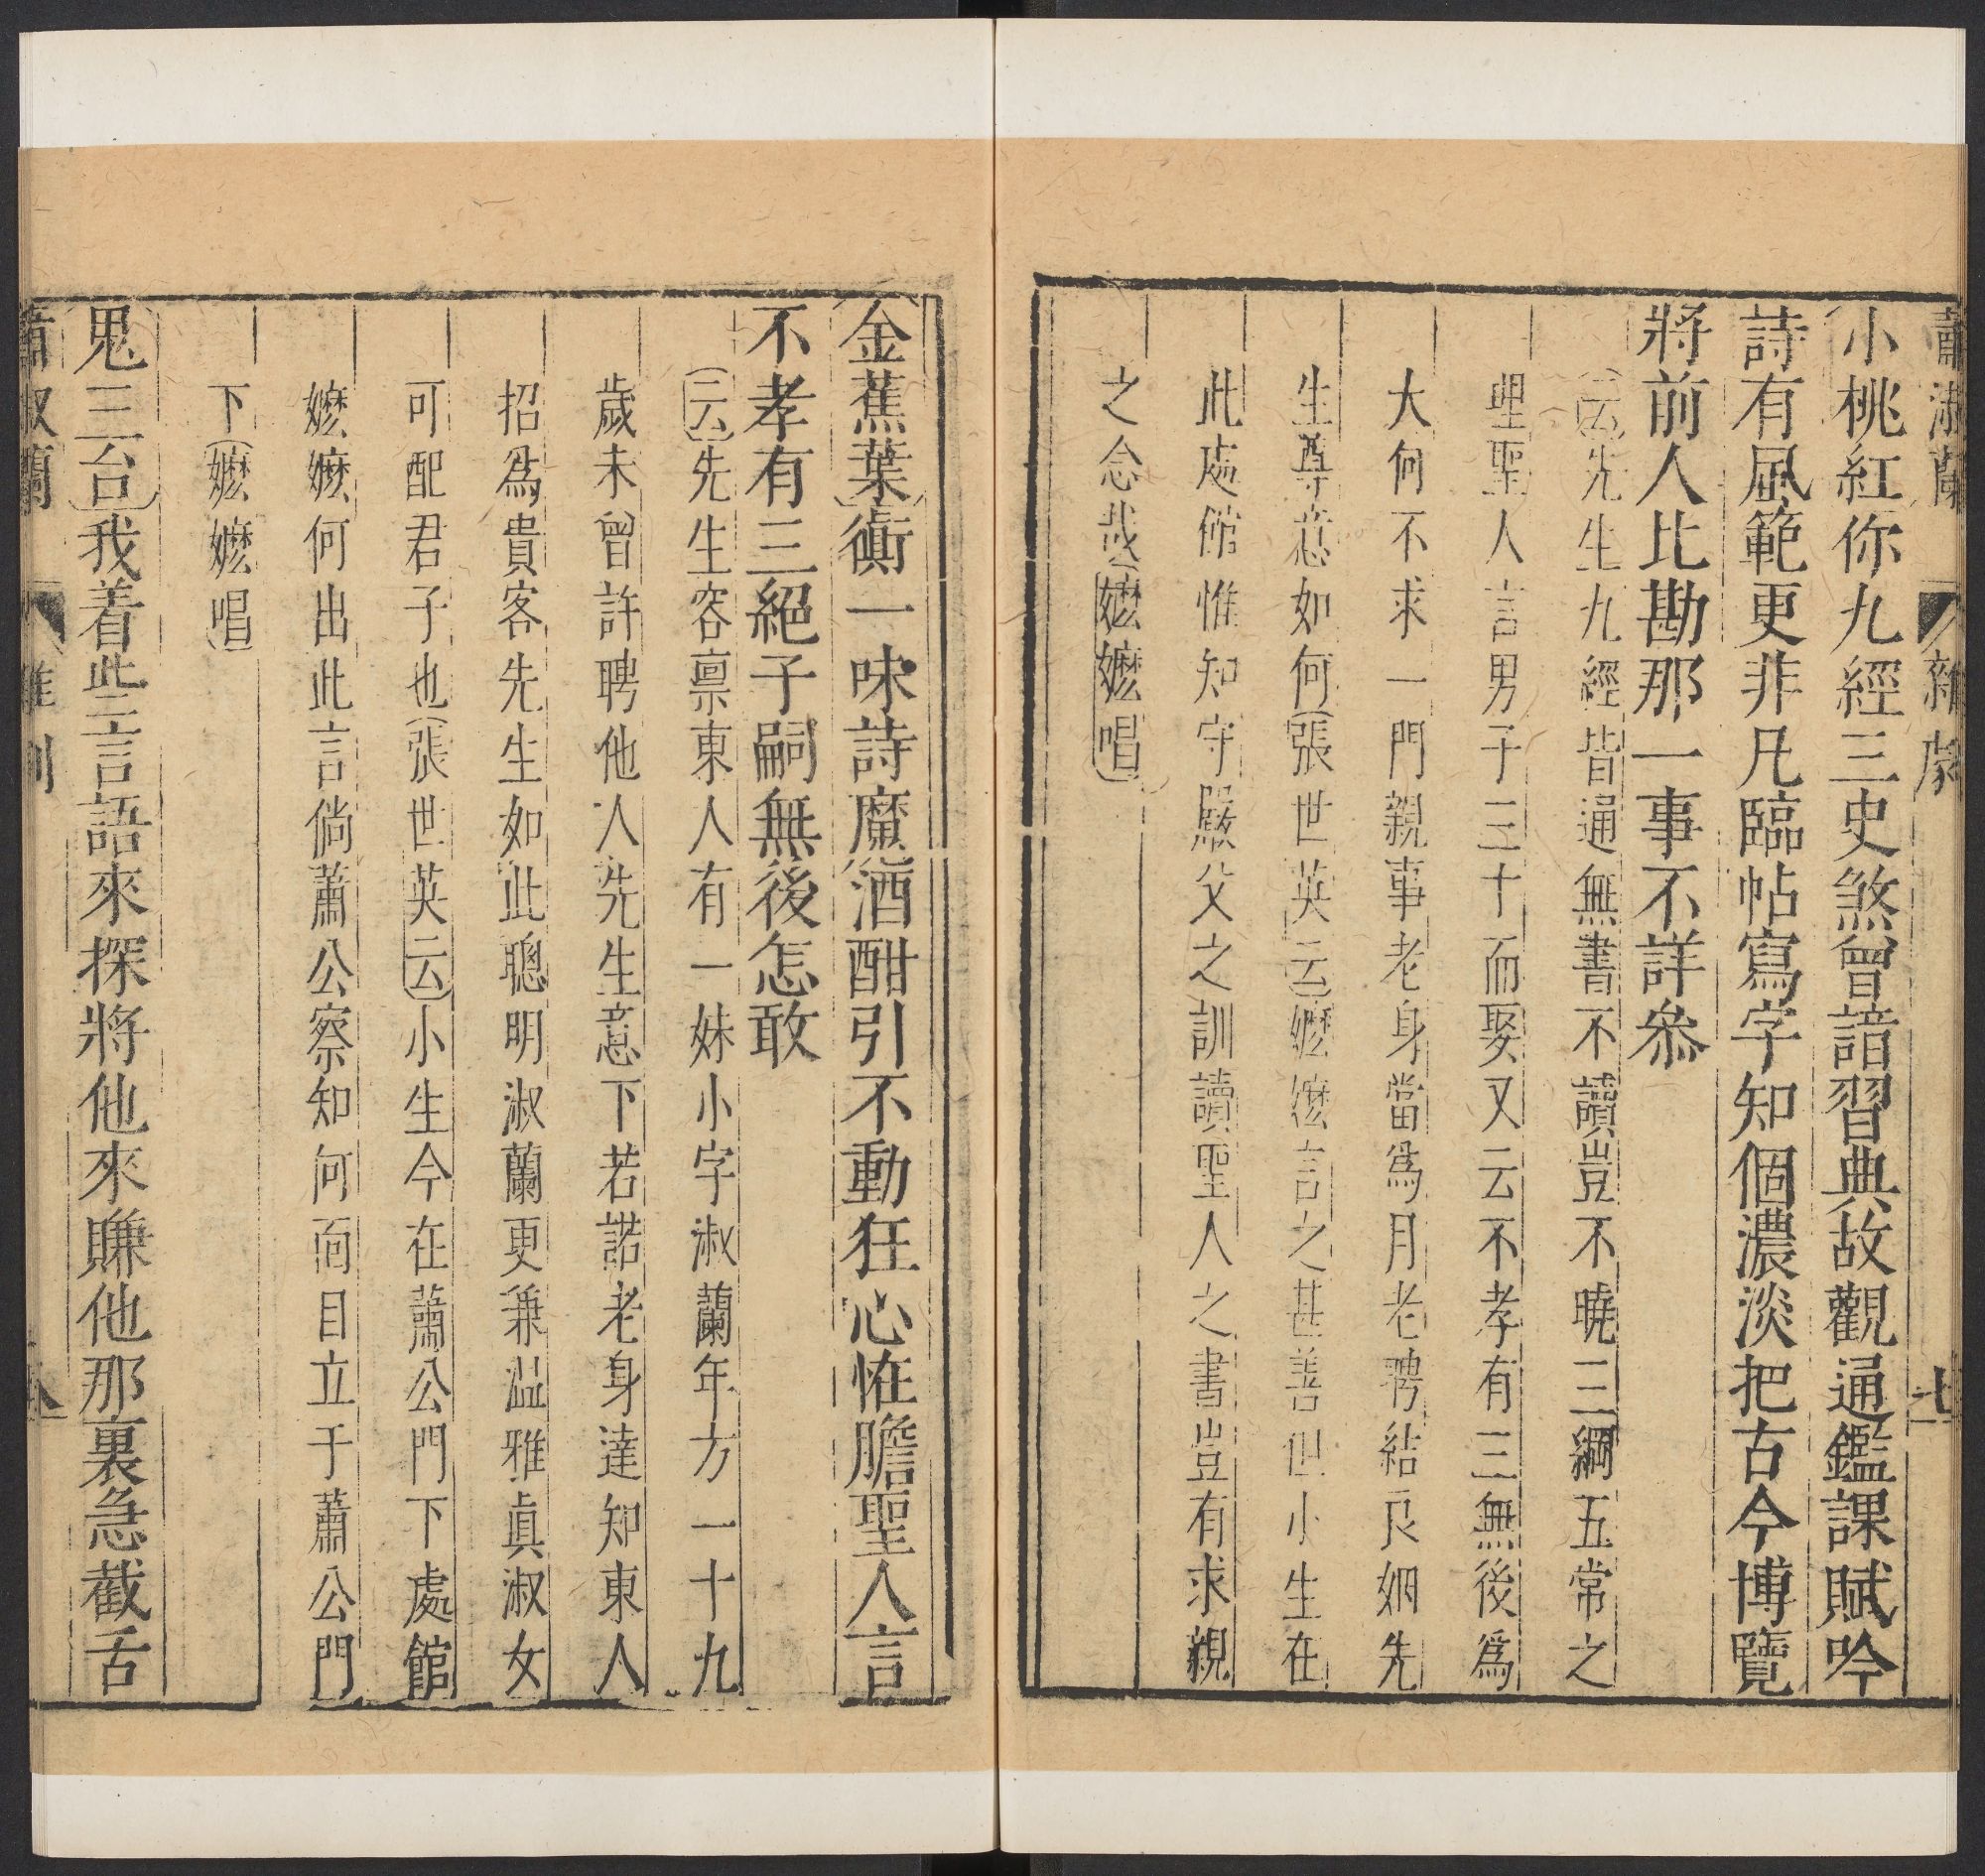 蕭淑蘭 雜劇 七
小桃紅你九經三史煞曾諳習典故觀通鑑課賦吟
詩有風範更非凡臨帖寫字知個濃淡把古今博覽
將前人比勘那一事不詳參
云先生九經皆通無書不讀豈不曉三綱五常之
理聖人言男子三十而娶又云不孝有三無後爲
大何不求一門親事老身當爲月老聘結良姻先
生尊意如何張世英云嬷嬷言之甚善但小生在
此處館惟知守嚴父之訓讀聖人之書豈有求親
之念哉嬷嬷唱
金蕉葉衠一味詩魔酒酣引不動狂心恠膽聖人言
不孝有三絕子嗣無後怎敢
云先生容禀東人有一妹小字淑蘭年方一十九
歲未曾許聘他人先生意下若諾老身達知東人
招爲貴客先生如此聰明淑蘭更兼溫雅眞淑女
可配君子也張世英云小生今在蕭公門下處館
嬷嬷何出此言倘蕭公察知何面目立于蕭公門
下嬷嬷唱
鬼三台我着些言語來探將他來賺他那裏急截舌
蕭淑蘭 雜劇 八